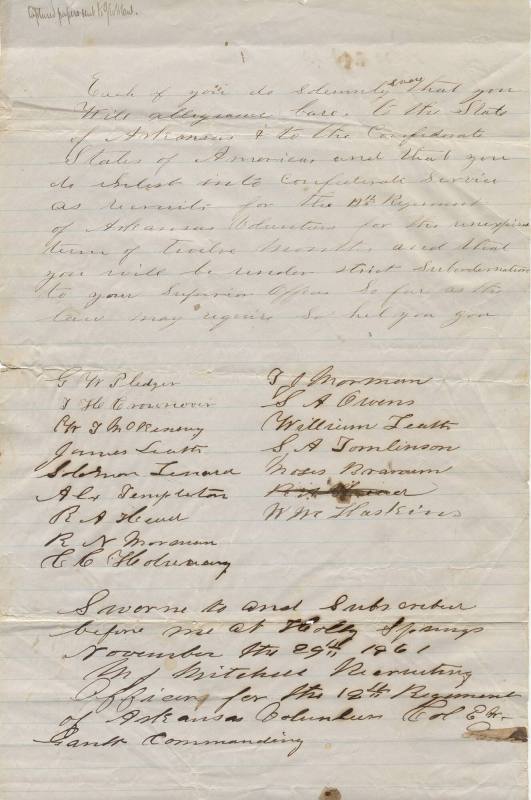 Captured papers sent
Each of you do solemnly swear that you
Will allegiance bare to the State
of Arkansas & to the Confederate
States of America and that you
do enlist into Confederate Service
as recruits for the 12th Regiment
of Arkansas Volunteers for the unexpired
term of twelve months and that
you will be under strict Subordernation
to your Superior Officers So far as the
law may require So help you god
G W Pledger
J H Crownover
W T McKenney
James Leath
Solomon Lenard
Alx Templeton
R A Head
R N Morman
E C Holsway
T J Morman
S A Owens
William Leath
S A Tomlinson
Moses
W M Haskins
Sworne to and Subscribed
before me at Holly Springs
November the 29th 1861
M J Mitchell Recruting
Officers for the 12th Regiment
of Arkansas Volunteers Col E W
Gantt Commanding